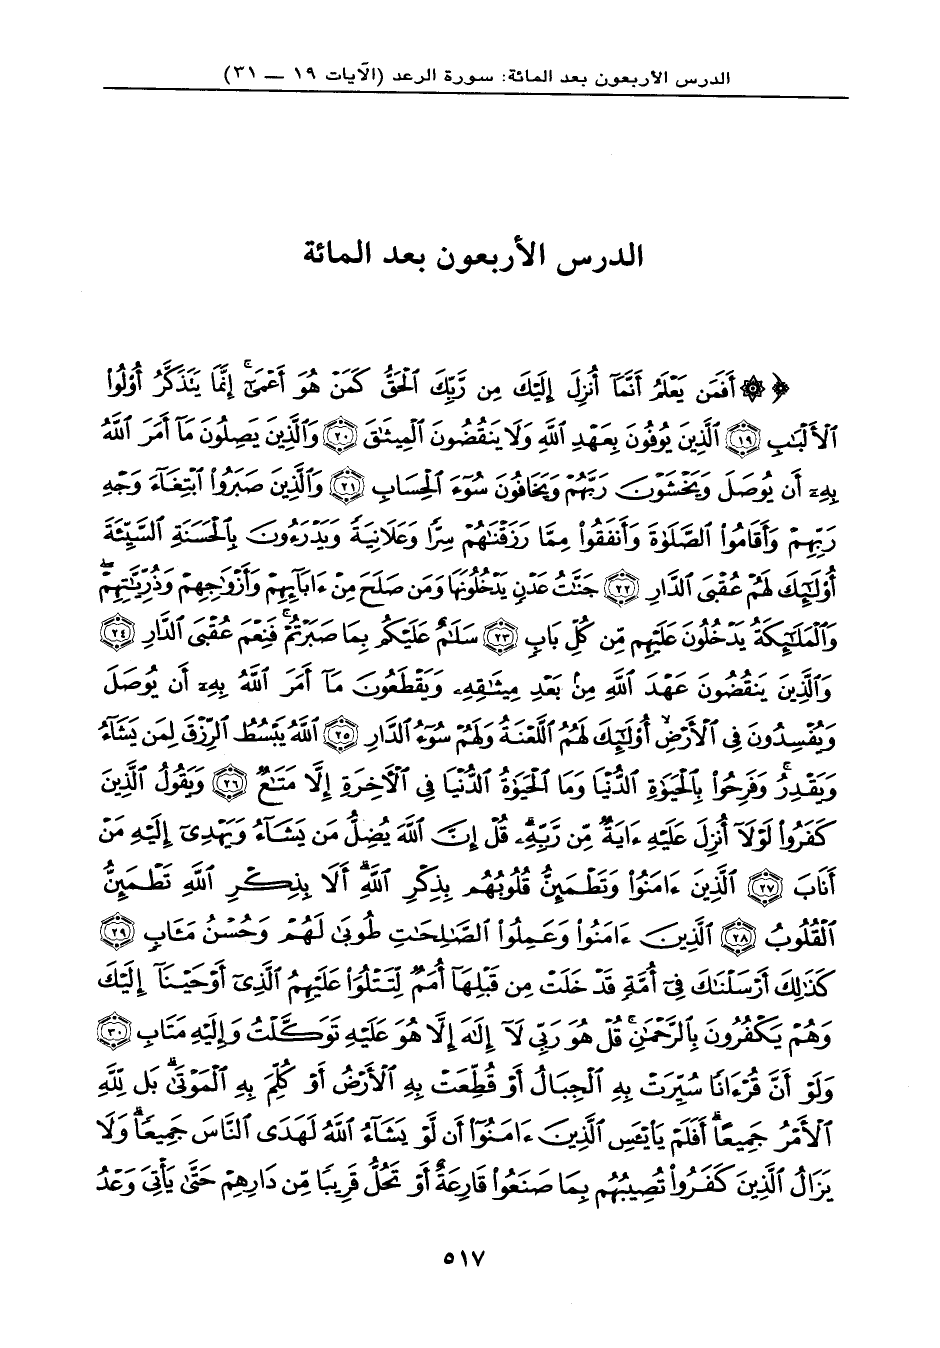 الدرس الأربعون بعد المائة: سورة الرعد (الآيات ١٩ ــ ٣١)
الدرس الأربعون بعد المائة
﴿۞ أَفَمَن يَعْلَمُ أَنَّمَآ أُنزِلَ إِلَيْكَ مِن رَّبِّكَ ٱلْحَقُّ كَمَنْ هُوَ أَعْمَىٰٓ ۚ إِنَّمَا يَتَذَكَّرُ أُو۟لُوا۟
ٱلْأَلْبَٰبِ ﴿١٩﴾ ٱلَّذِينَ يُوفُونَ بِعَهْدِ ٱللَّهِ وَلَا يَنقُضُونَ ٱلْمِيثَٰقَ ﴿٢٠﴾ وَٱلَّذِينَ يَصِلُونَ مَآ أَمَرَ ٱللَّهُ
بِهِۦٓ أَن يُوصَلَ وَيَخْشَوْنَ رَبَّهُمْ وَيَخَافُونَ سُوٓءَ ٱلْحِسَابِ ﴿٢١﴾ وَٱلَّذِينَ صَبَرُوا۟ ٱبْتِغَآءَ وَجْهِ
رَبِّهِمْ وَأَقَامُوا۟ ٱلصَّلَوٰةَ وَأَنفَقُوا۟ مِمَّا رَزَقْنَٰهُمْ سِرًّا وَعَلَانِيَةً وَيَدْرَءُونَ بِٱلْحَسَنَةِ ٱلسَّيِّئَةَ
أُو۟لَٰٓئِكَ لَهُمْ عُقْبَى ٱلدَّارِ ﴿٢٢﴾ جَنَّٰتُ عَدْنٍ يَدْخُلُونَهَا وَمَن صَلَحَ مِنْ ءَابَآئِهِمْ وَأَزْوَٰجِهِمْ وَذُرِّيَّٰتِهِمْ ۖ
وَٱلْمَلَٰٓئِكَةُ يَدْخُلُونَ عَلَيْهِم مِّن كُلِّ بَابٍ ﴿٢٣﴾ سَلَٰمٌ عَلَيْكُم بِمَا صَبَرْتُمْ ۚ فَنِعْمَ عُقْبَى ٱلدَّارِ ﴿٢٤﴾
وَٱلَّذِينَ يَنقُضُونَ عَهْدَ ٱللَّهِ مِنۢ بَعْدِ مِيثَٰقِهِۦ وَيَقْطَعُونَ مَآ أَمَرَ ٱللَّهُ بِهِۦٓ أَن يُوصَلَ
وَيُفْسِدُونَ فِى ٱلْأَرْضِ ۙ أُو۟لَٰٓئِكَ لَهُمُ ٱللَّعْنَةُ وَلَهُمْ سُوٓءُ ٱلدَّارِ ﴿٢٥﴾ ٱللَّهُ يَبْسُطُ ٱلرِّزْقَ لِمَن يَشَآءُ
وَيَقْدِرُ ۚ وَفَرِحُوا۟ بِٱلْحَيَوٰةِ ٱلدُّنْيَا وَمَا ٱلْحَيَوٰةُ ٱلدُّنْيَا فِى ٱلْءَاخِرَةِ إِلَّا مَتَٰعٌ ﴿٢٦﴾ وَيَقُولُ ٱلَّذِينَ
كَفَرُوا۟ لَوْلَآ أُنزِلَ عَلَيْهِ ءَايَةٌ مِّن رَّبِّهِۦ ۗ قُلْ إِنَّ ٱللَّهَ يُضِلُّ مَن يَشَآءُ وَيَهْدِىٓ إِلَيْهِ مَنْ
أَنَابَ ﴿٢٧﴾ ٱلَّذِينَ ءَامَنُوا۟ وَتَطْمَئِنُّ قُلُوبُهُم بِذِكْرِ ٱللَّهِ ۗ أَلَا بِذِكْرِ ٱللَّهِ تَطْمَئِنُّ
ٱلْقُلُوبُ ﴿٢٨﴾ ٱلَّذِينَ ءَامَنُوا۟ وَعَمِلُوا۟ ٱلصَّٰلِحَٰتِ طُوبَىٰ لَهُمْ وَحُسْنُ مَـَٔابٍ ﴿٢٩﴾
كَذَٰلِكَ أَرْسَلْنَٰكَ فِىٓ أُمَّةٍ قَدْ خَلَتْ مِن قَبْلِهَآ أُمَمٌ لِّتَتْلُوَا۟ عَلَيْهِمُ ٱلَّذِىٓ أَوْحَيْنَآ إِلَيْكَ
وَهُمْ يَكْفُرُونَ بِٱلرَّحْمَٰنِ ۚ قُلْ هُوَ رَبِّى لَآ إِلَٰهَ إِلَّا هُوَ عَلَيْهِ تَوَكَّلْتُ وَإِلَيْهِ مَتَابِ ﴿٣٠﴾
وَلَوْ أَنَّ قُرْءَانًا سُيِّرَتْ بِهِ ٱلْجِبَالُ أَوْ قُطِّعَتْ بِهِ ٱلْأَرْضُ أَوْ كُلِّمَ بِهِ ٱلْمَوْتَىٰ ۗ بَل لِّلَّهِ
ٱلْأَمْرُ جَمِيعًا ۗ أَفَلَمْ يَا۟يْـَٔسِ ٱلَّذِينَ ءَامَنُوٓا۟ أَن لَّوْ يَشَآءُ ٱللَّهُ لَهَدَى ٱلنَّاسَ جَمِيعًا ۗ وَلَا
يَزَالُ ٱلَّذِينَ كَفَرُوا۟ تُصِيبُهُم بِمَا صَنَعُوا۟ قَارِعَةٌ أَوْ تَحُلُّ قَرِيبًا مِّن دَارِهِمْ حَتَّىٰ يَأْتِىَ وَعْدُ
٥١٧